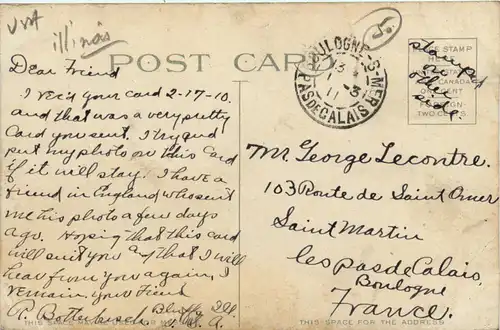 illinois
POST CARD
BOULOGNE-S-MER
13
PAS DE CALAIS
stamped
on
other
side.
Dear Friend
I rec'd your card 2-17-10.
and that was a very pretty
Card you sent. I try and
put my photo on this Card
if it will stay. I have a
friend in England who sent
me his photo a few days
ago. Hoping that this card
will suit you and that I will
hear from you again, I
remain, your Friend
Bluffs Ill.
U.S.A.
Mr. George Lecontre.
103 Route de Saint Omer
Saint Martin
les pas de Calais,
Boulogne
France.
THIS SPACE FOR THE ADDRESS